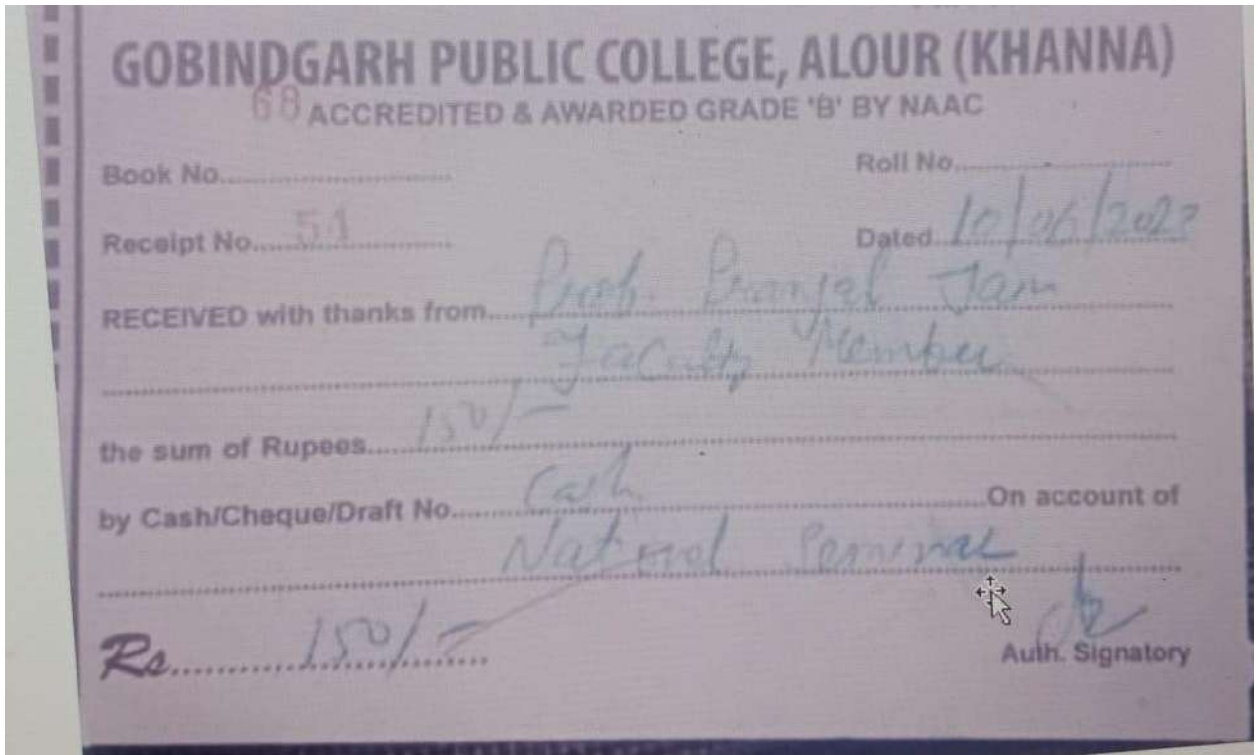 GOBINDGARH PUBLIC COLLEGE, ALOUR (KHANNA)
68 ACCREDITED & AWARDED GRADE 'B' BY NAAC
Book No.............................. Roll No..............................
Receipt No.....51............... Dated 10/06/2023
RECEIVED with thanks from.....Prof. Pranjal Jain
Faculty Member
the sum of Rupees.....150/-
by Cash/Cheque/Draft No.....Cash.....On account of
National Seminar
Rs.....150/-
Auth. Signatory